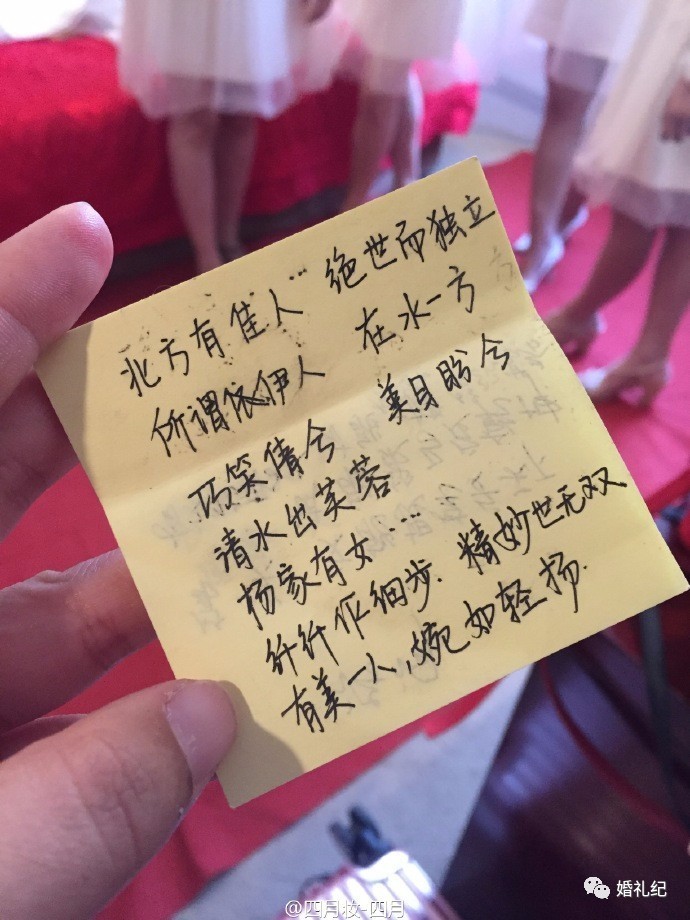 北方有佳人… 绝世而独立
所谓依伊人 在水一方
巧笑倩兮 美目盼兮
清水出芙蓉
杨家有女……
纤纤作细步. 精妙世无双
有美一人,婉如轻扬.
@四月妆-四月
婚礼纪